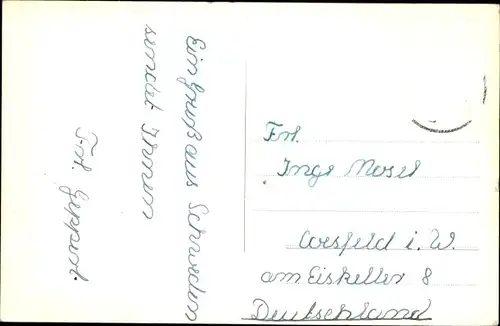 Ein Gruß aus Schweden
sendet Ihnen
Frl. Geppert.
Frl.
Inge Mosel
Coesfeld i. W.
am Eiskeller 8
Deutschland